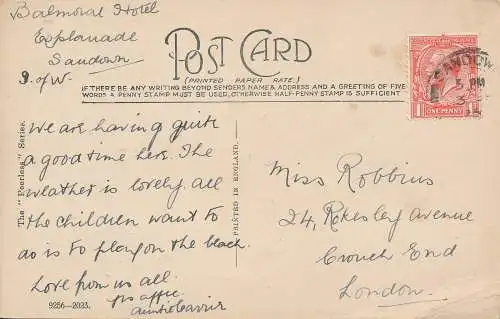 Balmoral Hotel
Esplanade
Sandown
I. of W.
POST CARD
(PRINTED PAPER RATE)
IF THERE BE ANY WRITING BEYOND SENDERS NAME & ADDRESS AND A GREETING OF FIVE
WORDS A PENNY STAMP MUST BE USED, OTHERWISE HALF-PENNY STAMP IS SUFFICIENT
SANDOW
PM
ONE PENNY
The "Peerless" Series.
We are having quite
a good time here. The
weather is lovely. all
the children want to
do is to play on the beach.
Love from us all.
auntie Carrie
9256-2023.
PRINTED IN ENGLAND.
Miss Robbins
24, Rokesley Avenue
Crouch End
London.